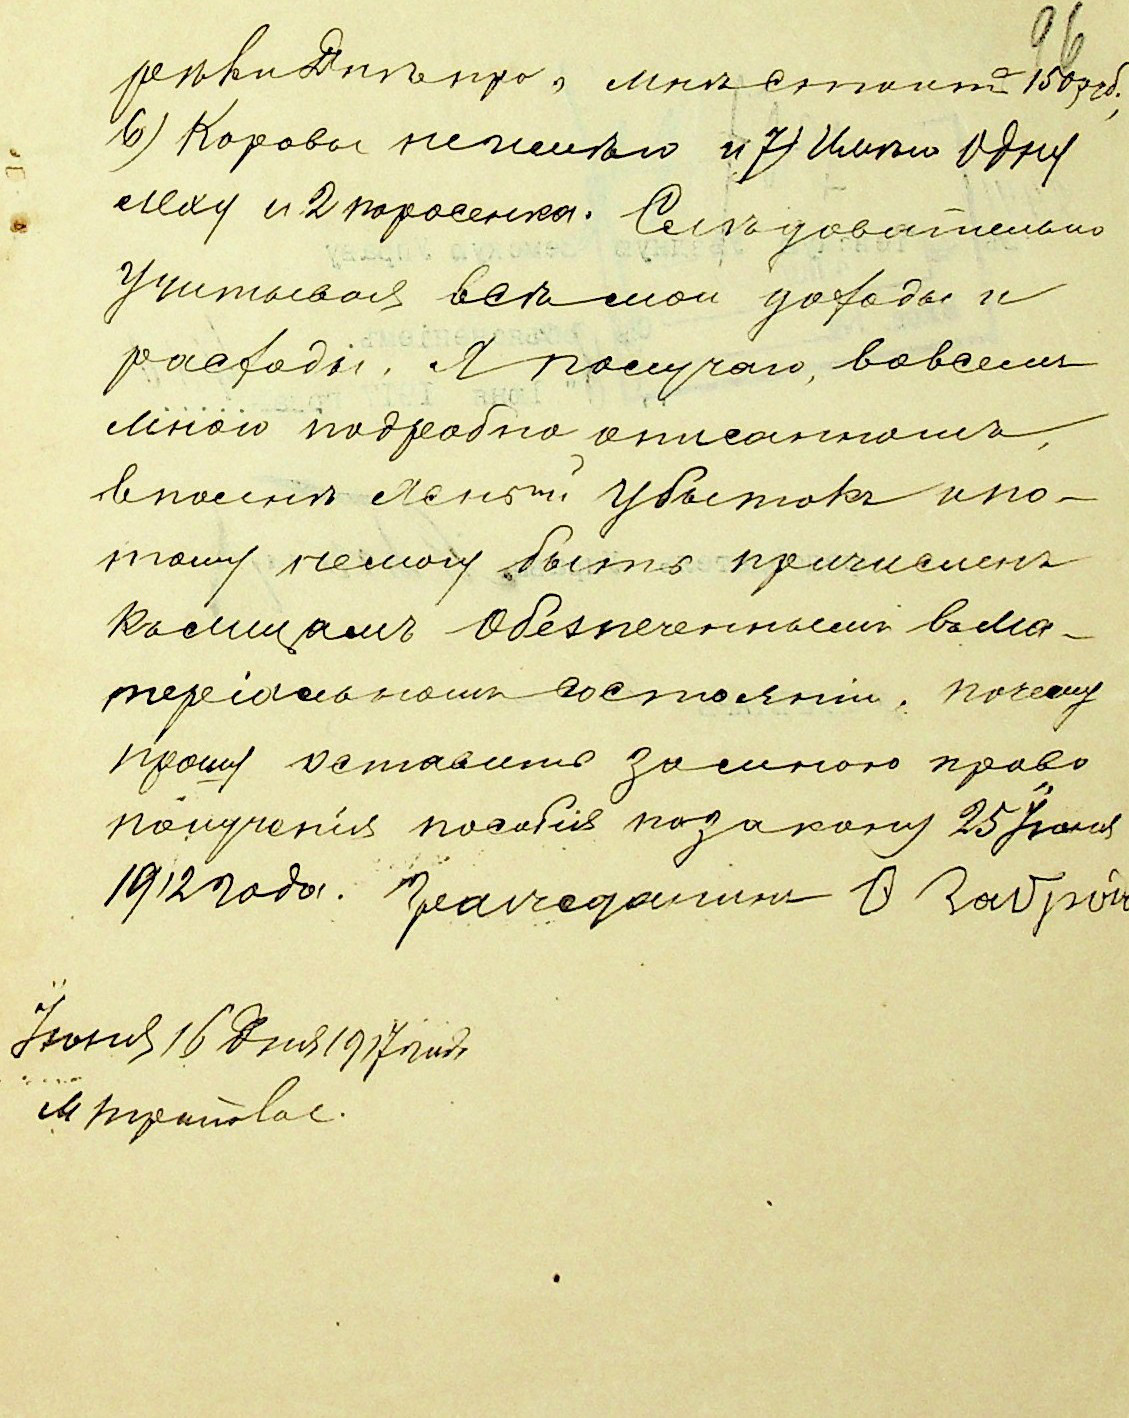 96
рѣки Днѣпра, мнѣ стоитъ 150 руб.,
6) Коровы неимѣю и 7) Имѣю Одну
и 2 поросенка. Слѣдовательно
Учитывая всѣ мои доходы и
расходы. Я получаю, вовсемъ
мною подробно описанномъ,
вполнѣ Ясный Убытокъ ипо-
тому немогу быть причисленъ
Къ лицамъ Обезпеченнымъ въ Ма-
теріальномъ состояніи, почему
прошу оставить за мною право
полученія пособія по закону 25 Іюня
1912 года. Гражданинъ
Іюня 16 Дня 1917 года
М